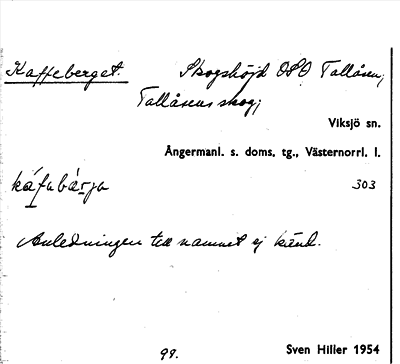 Kaffeberget. Skogshöjd OSO Tallåsen,
Tallåsens skog;
Viksjö sn.
Ångermanl. s. doms. tg., Västernorrl. l.
káfabárja 303
Anledningen till namnet ej känd.
99. Sven Hiller 1954